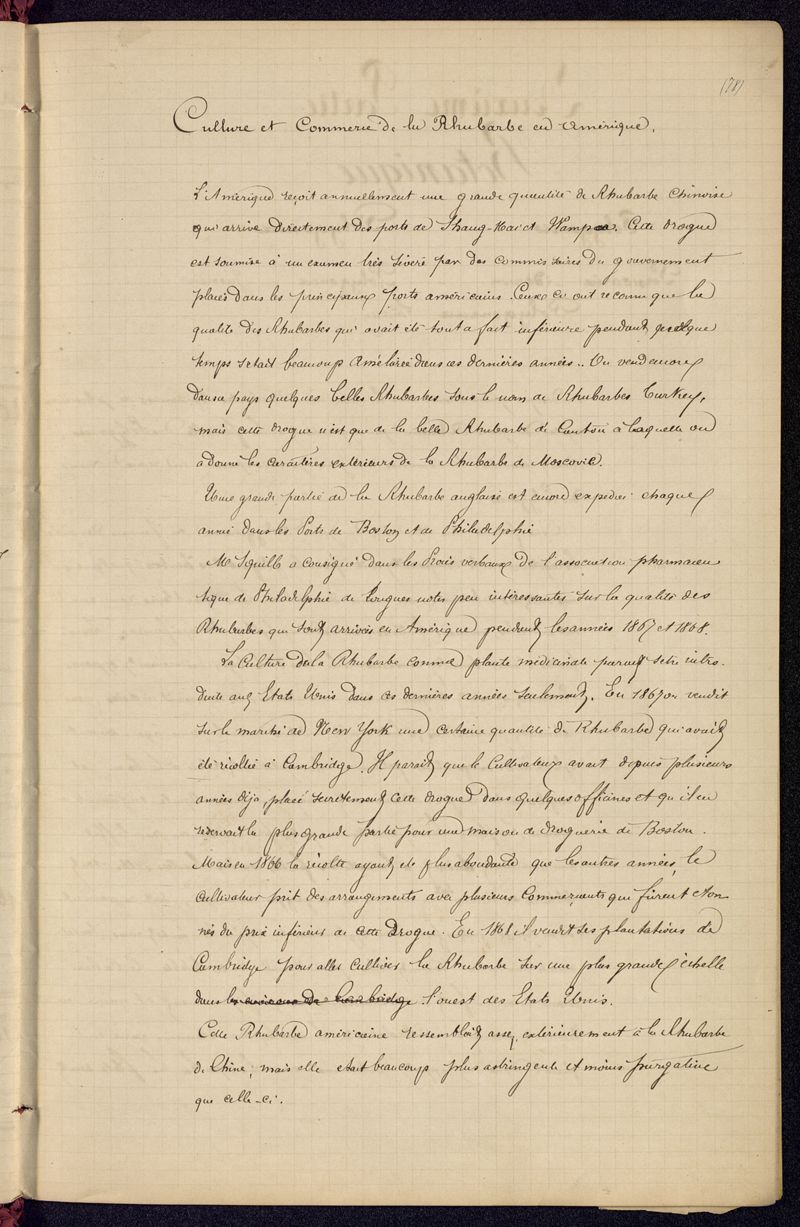 (78)
Culture et Commerce de la Rhubarbe en Amérique.
L'Amérique reçoit annuellement une grande quantité de Rhubarbe Chinoise
qui arrive directement des ports de Shang-Hai et Wampoa. Cette drogue
est soumise à un examen très sévère par des commissaires du gouvernement
placés dans les principaux ports américains. Ceux ci ont reconnu que la
qualité des Rhubarbes qui avait été tout a fait inférieure pendant quelque
temps s'était beaucoup améliorée dans ces dernières années.. On vend encore
dans ce pays quelques belles Rhubarbes sous le nom de Rhubarbes Turkey,
mais cette drogue n'est que de la belle Rhubarbe de Canton à laquelle on
a donné les caractères extérieurs de la Rhubarbe de Moscovie.
Une grande partie de la Rhubarbe anglaise est encore expédiée chaque
année dans les Ports de Boston et de Philadelphie
Mr Squill a consigné dans les Procès verbaux de l'association pharmaceu
tique de Philadelphie de longues notes peu intéressantes sur la qualité des
Rhubarbes qui sont arrivées en Amérique pendant les années 1867 et 1868.
La Culture de la Rhubarbe comme plante médicinale parait s'être intro-
duite aux Etats Unis dans ces dernières années seulement. En 1867 on vendit
sur le marché de New York une certaine quantité de Rhubarbe qui avait
été récoltée à Cambridge. Il parait que le Cultivateur avait depuis plusieurs
années déja, placé secrètement cette drogue dans quelques officines et qu'il en
réservait la plus grande partie pour une maison de droguerie de Boston.
Mais en 1866 la récolte ayant été plus abondante que les autres années, le
cultivateur prit des arrangements avec plusieurs Commerçants qui furent éton
nés du prix inférieur de cette Drogue. En 1868 il vendit ses plantations de
Cambridge pour aller cultiver la Rhubarbe sur une plus grande échelle
dans l'ouest des Etats Unis.
Cette Rhubarbe américaine ressemblait assez extérieurement à la Rhubarbe
de Chine; mais elle était beaucoup plus astringente et moins purgative
que celle-ci.